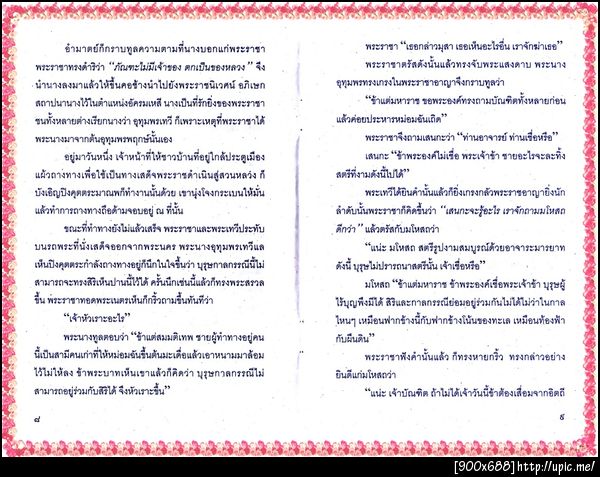 อำมาตย์ก็กราบทูลความตามที่นางบอกแก่พระราชา
พระราชาทรงดำริว่า “ภัณฑะไม่มีเจ้าของ ตกเป็นของหลวง” จึง
นำนางลงมาแล้วให้ขึ้นคอช้างนำไปยังพระราชนิเวศน์ อภิเษก
สถาปนานางไว้ในตำแหน่งอัครมเหสี นางเป็นที่รักยิ่งของพระราชา
ชนทั้งหลายต่างเรียกนางว่า อุทุมพรเทวี ก็เพราะเหตุที่พระราชาได้
พระนางมาจากต้นอุทุมพรพฤกษ์นั้นเอง
อยู่มาวันหนึ่ง เจ้าหน้าที่ให้ชาวบ้านที่อยู่ใกล้ประตูเมือง
แผ้วถางทางเพื่อใช้เป็นทางเสด็จพระราชดำเนินสู่สวนหลวง ก็
บังเอิญปิงคุตตระมาณพก็ทำงานนั้นด้วย เขานุ่งโจงกระเบนให้มั่น
แล้วทำการถางทางถือด้ามจอบอยู่ ณ ที่นั้น
ขณะที่ทำทางยังไม่แล้วเสร็จ พระราชาและพระเทวีประทับ
บนรถพระที่นั่งเสด็จออกจากพระนคร พระนางอุทุมพรเทวีแล
เห็นปิงคุตตระกำลังถางทางอยู่ก็นึกในใจขึ้นว่า บุรุษกาลกรรณีนี้ไม่
สามารถจะทรงสิริเห็นปานนี้ไว้ได้ ครั้นนึกเช่นนี้แล้วก็ทรงพระสรวล
ขึ้น พระราชาทอดพระเนตรเห็นก็กริ้วถามขึ้นทันทีว่า
“เจ้าหัวเราะอะไร”
พระนางทูลตอบว่า “ข้าแต่สมมติเทพ ชายผู้ทำทางอยู่คน
นี้เป็นสามีคนเก่าที่ให้หม่อมฉันขึ้นต้นมะเดื่อแล้วเอาหนามมาล้อม
ไว้ไม่ให้ลง ข้าพระบาทเห็นเขาแล้วก็คิดว่า บุรุษกาลกรรณีไม่
สามารถอยู่ร่วมกับสิริได้ จึงหัวเราะขึ้น”
๘
พระราชา “เธอกล่าวมุสา เธอเห็นอะไรอื่น เราจักฆ่าเธอ”
พระราชาตรัสดังนั้นแล้วทรงจับพระแสงดาบ พระนาง
อุทุมพรทรงเกรงในพระราชอาญาจึงกราบทูลว่า
“ข้าแต่มหาราช ขอพระองค์ทรงถามบัณฑิตทั้งหลายก่อน
แล้วค่อยประหารหม่อมฉันเถิด”
พระราชาจึงถามเสนกะว่า “ท่านอาจารย์ ท่านเชื่อหรือ”
เสนกะ “ข้าพระองค์ไม่เชื่อ พระเจ้าข้า ชายอะไรจะละทิ้ง
สตรีที่งามดังนี้ไปได้”
พระเทวีได้ยินคำนั้นแล้วก็ยิ่งเกรงกลัวพระราชอาญายิ่งนัก
ลำดับนั้นพระราชาก็คิดขึ้นว่า “เสนกะจะรู้อะไร เราจักถามมโหสถ
ดีกว่า” แล้วตรัสกับมโหสถว่า
“แน่ะ มโหสถ สตรีรูปงามสมบูรณ์ด้วยอาจาระมารยาท
ดังนี้ บุรุษไม่ปรารถนาสตรีนั้น เจ้าเชื่อหรือ”
มโหสถ “ข้าแต่มหาราช ข้าพระองค์เชื่อพระเจ้าข้า บุรุษผู้
ไร้บุญพึงมีได้ สิริและกาลกรรณีย่อมอยู่ร่วมกันไม่ได้ไม่ว่าในกาล
ไหนๆ เหมือนฟากข้างนี้กับฟากข้างโน้นของทะเล เหมือนท้องฟ้า
กับผืนดิน”
พระราชาฟังคำนั้นแล้ว ก็ทรงหายกริ้ว ทรงกล่าวอย่าง
ยินดีแก่มโหสถว่า
“แน่ะ เจ้าบัณฑิต ถ้าไม่ได้เจ้าวันนี้ข้าต้องเสื่อมจากอิตถี
๙
[900x688] http://upic.me/